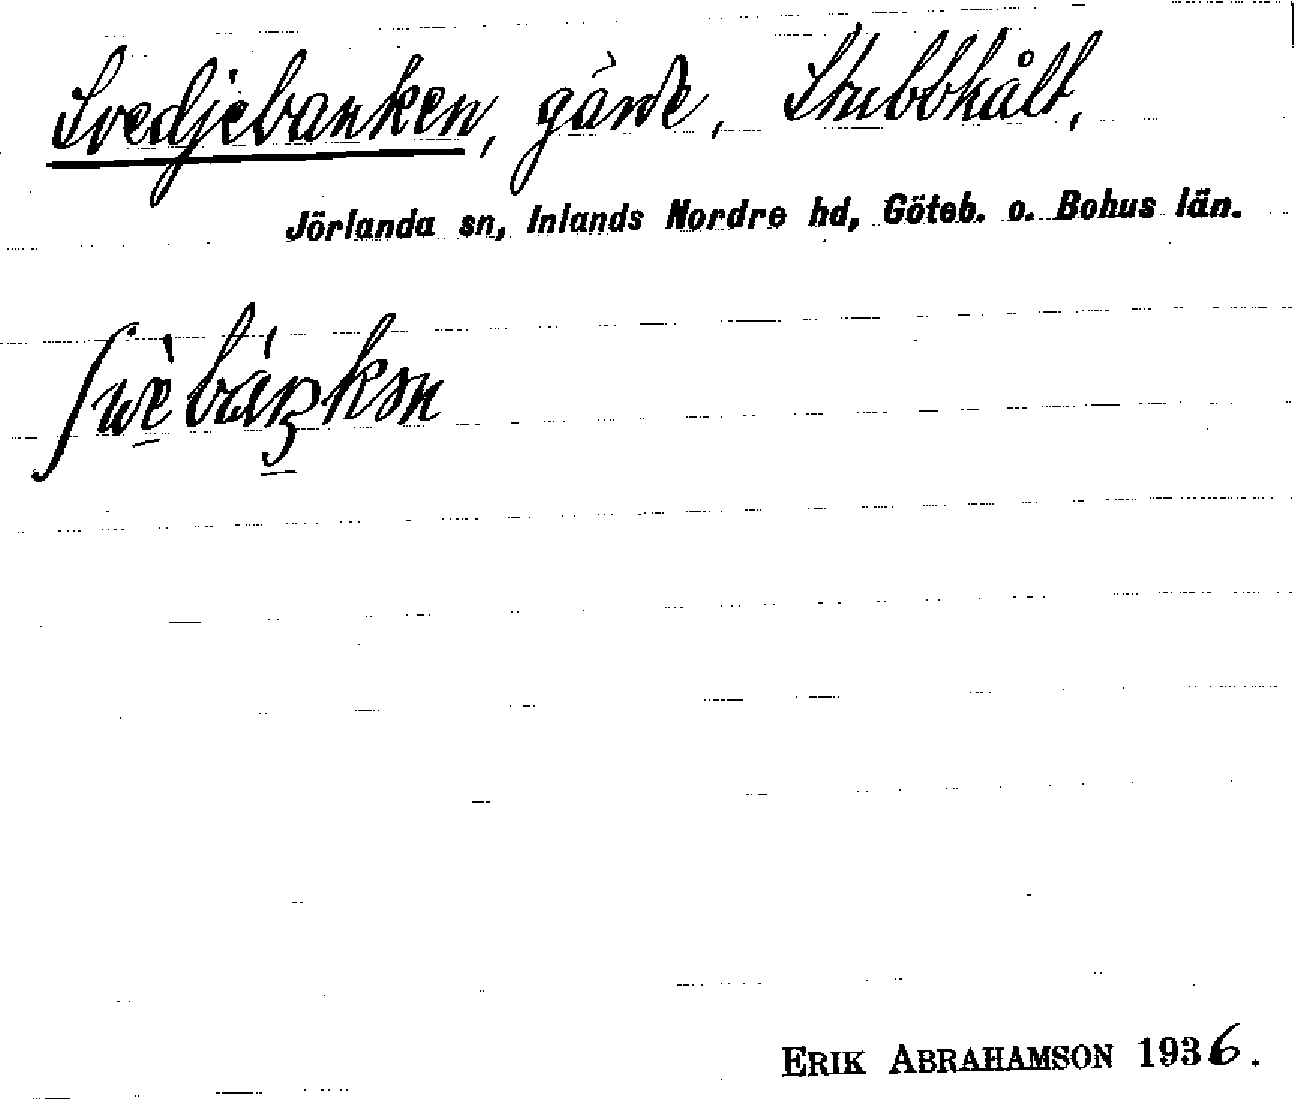 Svedjebanken, gärde, Stubbhålt,
Jörlanda sn, Inlands Nordre hd, Göteb. o. Bohus län.
ERIK ABRAHAMSON 1936.